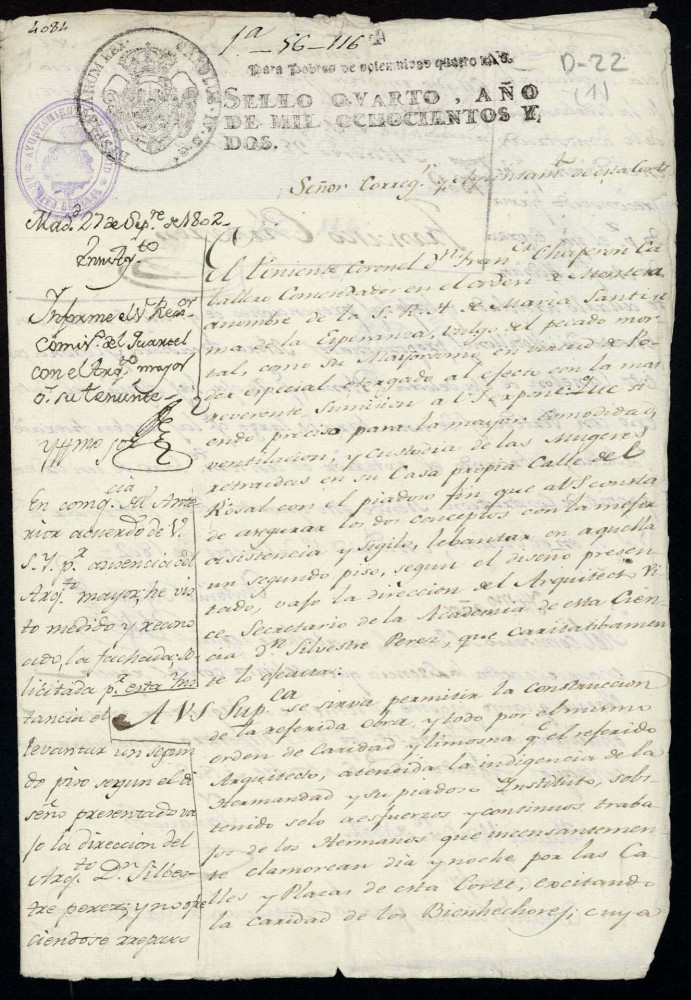 4084
1ª-56-116
D-22
(1)
Para Pobres de solemnidad quatro mrs.
SELLO QVARTO, AÑO
DE MIL OCHOCIENTOS Y
DOS.
HISPANIARUM REX CAROLUS IV D G
AYUNTAMIENTO
Señor Correg.r y Ayuntam.to de esta Corte
Mad.d 27 de Sep.re de 1802
En su Ay.to
Informe el S.r Rex.or
Comis.o del Quartel
con el Arq.to mayor
o su teniente
Yllmo Sor
En comq.cia del Ante
rior acuerdo de V.
S. Y. p.r ausencia del
Arq.to mayor, he vis
to medido y recono
cido, la fachada so
licitada p.r esta Yns
tancia el
levantar un segun
do piso segun el di
seño presentado va
jo la direccion del
Arq.to D.n Silbes
tre perez; y no ofre
ciendose reparo
El Teniente Coronel D.n Fran.co Chaperon Ca
ballero Comendador en el orden de
a nombre de la S. R. H. de Maria Santis
ma de la Esperanza, vulgo del pecado mor
tal, como su Mayordomo, en virtud de Po
der especial otorgado al efecto con la mas
reverente sumision a V.S. expone: Que si
endo preciso para la mayor comodidad,
ventilacion, y custodia de las Mugeres
retraidas en su Casa propia Calle del
Rosal con el piadoso fin que a V.S consta
de asegurar los dos conceptos, con la mejor
asistencia y sigilo, lebantar en aquella
un segundo piso, segun el diseño presen
tado, vajo la direccion del Arquitecto Vi
ce Secretario de la Academia de esta Cien
cia D.n Silvestre Perez, que caritatibamen
te lo egecuta:
A VS Sup.ca se sirva permitir la construccion
de la referida obra, y todo por el mismo
orden de caridad y limosna q.e el referido
Arquitecto, atendida la indigencia de la
Hermandad y su piadoso Instituto, sobs
tenido solo a esfuerzos y continuos traba
jos de los Hermanos que incensantemen
te clamorean dia y noche por las Ca
lles y Plazas de esta Corte, excitando
la caridad de los Bienhechores; cuya